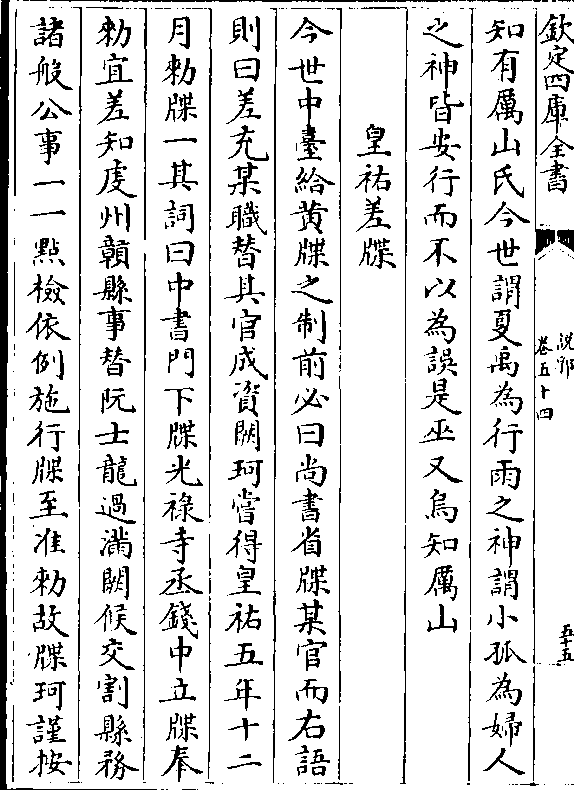 欽定四庫全書
說郛
卷五十四
五十五
知有厲山氏今世謂夏禹為行雨之神謂小孤為婦人
之神皆安行而不以為誤是巫又烏知厲山
皇祐差牒
今世中臺給黃牒之制前必曰尚書省牒某官而右語
則曰差充某職替某官成資闕珂嘗得皇祐五年十二
月勅牒一其詞曰中書門下牒光祿寺丞錢中立牒奉
勅宜差知虔州贛縣事替阮士龍過滿闕候交割縣務
諸般公事一一點檢依例施行牒至准勅故牒珂謹按